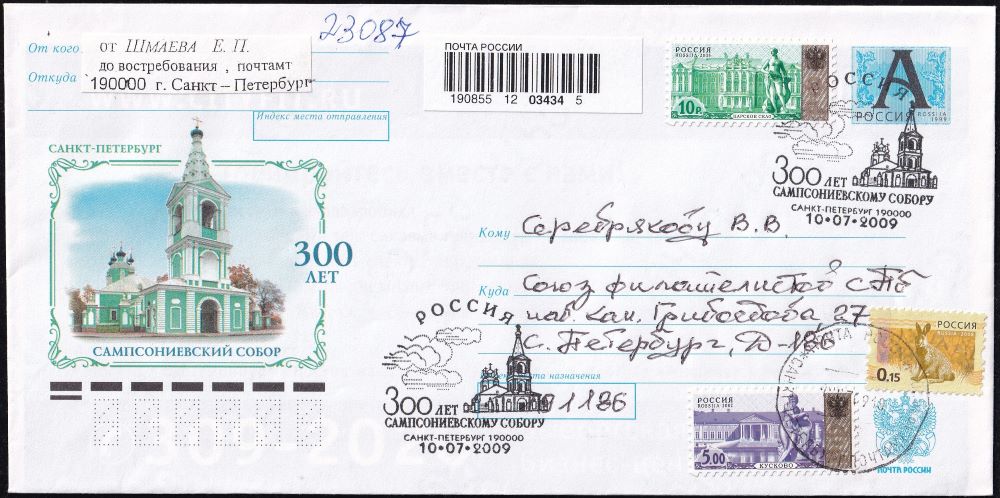 23087
От кого
от ШМАЕВА Е. П.
до востребования , почтамт
Откуда
190000 г. Санкт – Петербург
Индекс места отправления
ПОЧТА РОССИИ
190855 12 03434 5
РОССИЯ
ROSSIJA 2003
10р
ЦАРСКОЕ СЕЛО
А
РОССИЯ
ROSSIJA
1999
РОССИЯ
300 ЛЕТ
САМПСОНИЕВСКОМУ СОБОРУ
САНКТ-ПЕТЕРБУРГ 190000
10•07•2009
САНКТ-ПЕТЕРБУРГ
300
ЛЕТ
САМПСОНИЕВСКИЙ СОБОР
Кому
Серебрякову В.В.
Куда
Союз филателистов СПб
наб кан. Грибоедова 27
С. Петербург, Д-186
места назначения
191186
РОССИЯ
300 ЛЕТ
САМПСОНИЕВСКОМУ СОБОРУ
САНКТ-ПЕТЕРБУРГ 190000
10•07•2009
РОССИЯ
0.15
РОССИЯ
ROSSIJA 2002
5.00
КУСКОВО
ПОЧТА РОССИИ